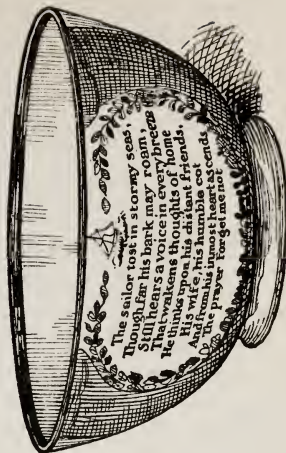 The sailor tost in stormy seas,
Though far his bark may roam,
Still hears a voice in every breeze
That wakens thoughts of home
He thinks upon his distant friends,
His wife, his humble cot
And from his inmost heart ascends
The prayer Forget me not